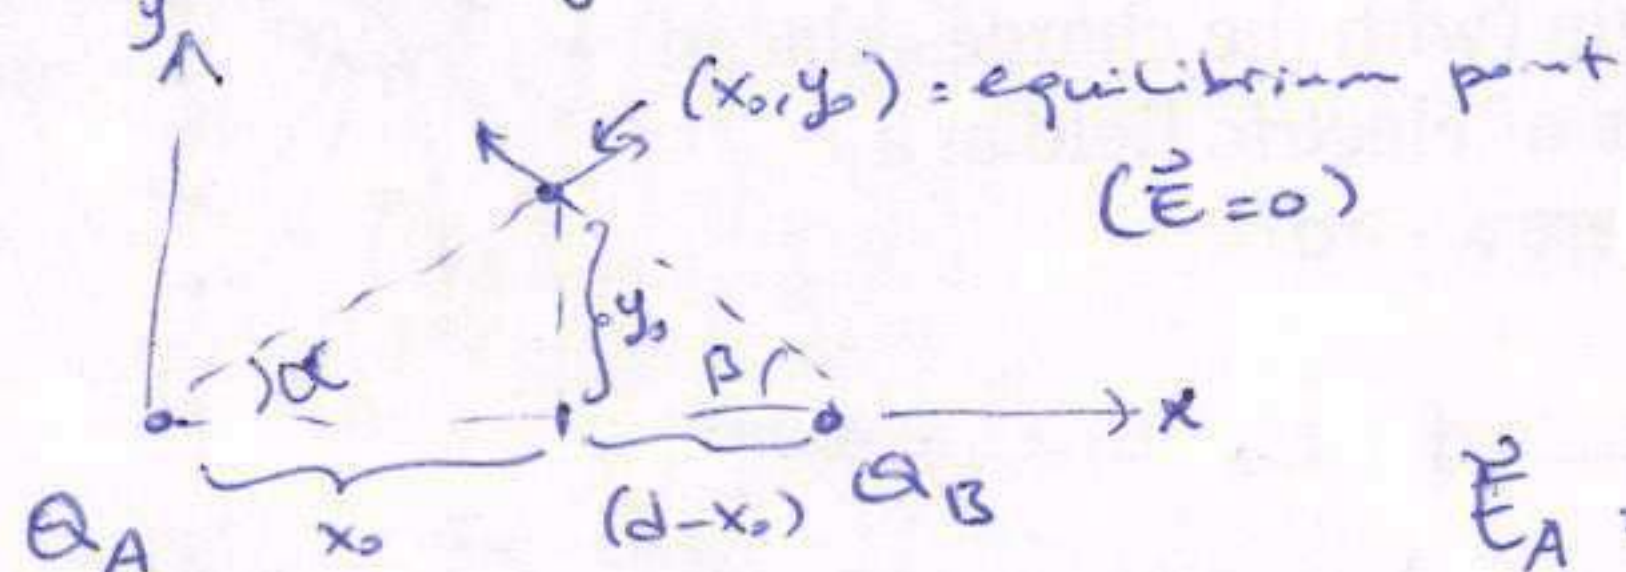 y
(x₀,y₀) = equilibrium point
(E⃗ = 0)
y₀
α
β
x
Q_A
x₀
(d-x₀)
Q_B
E⃗_A